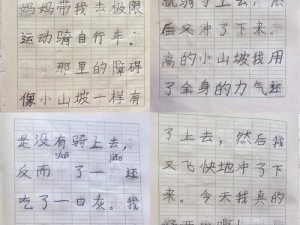 妈妈带我去极限
运动骑自行车。
那里的障碍
像小山坡一样有
就骑了上去,然
后又冲了下来。
高的小山坡我用
了全身的力气还
是没有骑上去,
反而 了一
吃了一口灰。我
了上去,然后我
又飞快地冲了下
来。今天我真的